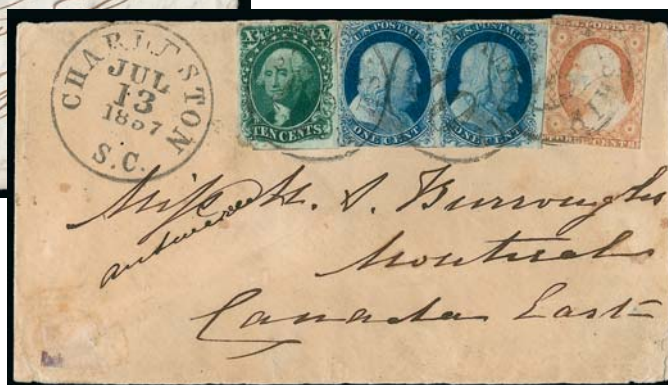 CHARLESTON
JUL
13
1857
S.C.
X U.S. POSTAGE X
TEN CENTS
U.S. POSTAGE
ONE CENT
U.S. POSTAGE
ONE CENT
U.S. POSTAGE
THREE CENTS
Miss H. S. Burroughs
answered
Montreal
Canada East